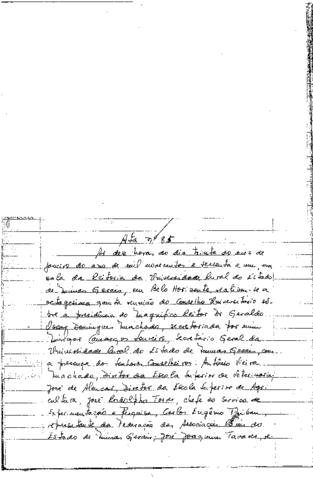 Ata nº 85
Às dez horas do dia trinta do mês de
janeiro do ano de mil novecentos e sessenta e um, em
sala da Reitoria da Universidade Rural do Estado
de Minas Gerais, em Belo Horizonte, realizou-se a
octogésima quinta reunião do Conselho Universitário sô-
bre a presidência do Magnífico Reitor Dr Geraldo
Oscar Domingues Machado, secretariada por mim
Secretário Geral da
Universidade Rural do Estado de Minas Gerais, com
a presença dos Senhores Conselheiros: Antônio Vieira
Machado, Diretor da Escola Superior de Veterinária,
José de Alencar, Diretor da Escola Superior de Agri-
cultura, José Rodolpho Torres, chefe do Serviço de
Experimentação e Pesquisa, Carlos Eugênio
representante da Federação das Associações Rurais do
Estado de Minas Gerais, José Joaquim Tavares, e